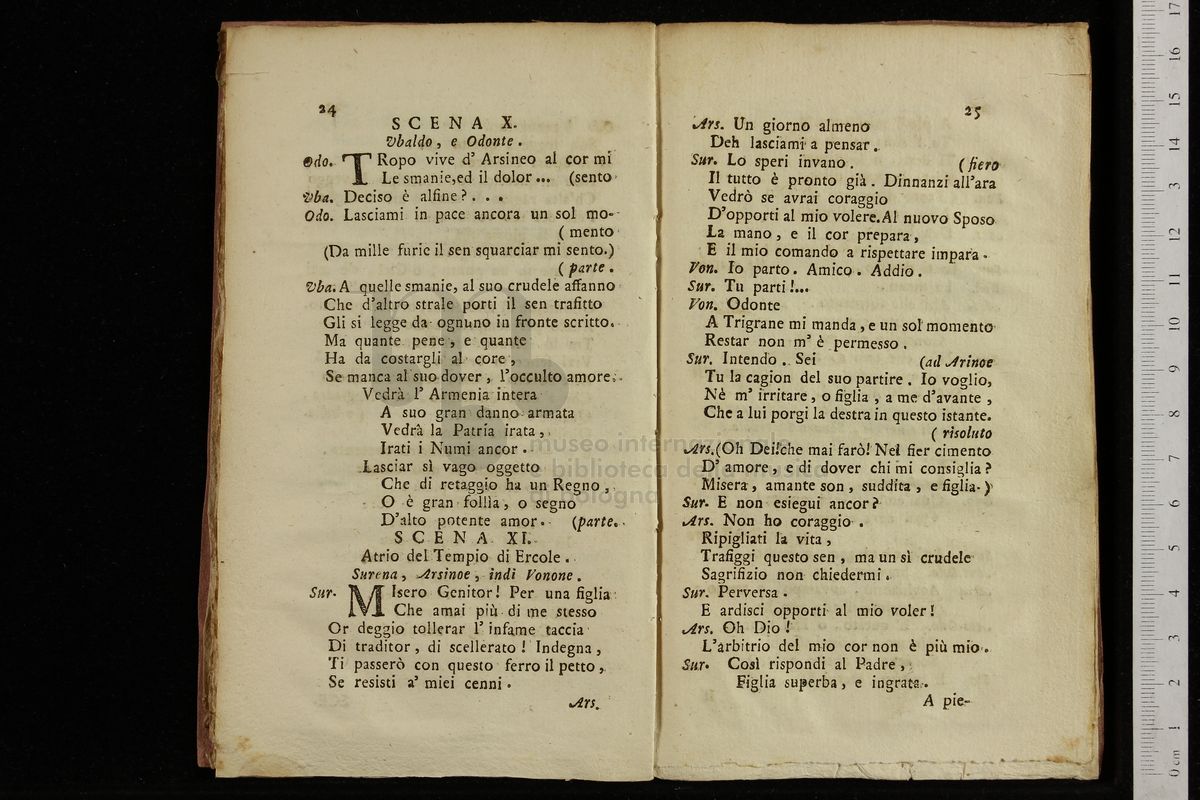 24
SCENA X.
Vbaldo, e Odonte.
Odo. TRopo vive d' Arsineo al cor mi
Le smanie, ed il dolor... (sento
Vba. Deciso è alfine?...
Odo. Lasciami in pace ancora un sol mo-
(mento
(Da mille furie il sen squarciar mi sento.)
(parte.
Vba. A quelle smanie, al suo crudele affanno
Che d'altro strale porti il sen trafitto
Gli si legge da ognuno in fronte scritto.
Ma quante pene, e quante
Ha da costargli al core,
Se manca al suo dover, l'occulto amore.
Vedrà l' Armenia intera
A suo gran danno armata
Vedrà la Patria irata,
Irati i Numi ancor.
Lasciar sì vago oggetto
Che di retaggio ha un Regno,
O è gran follìa, o segno
D'alto potente amor. (parte.
SCENA XI.
Atrio del Tempio di Ercole.
Surena, Arsinoe, indi Vonone.
Sur. MIsero Genitor! Per una figlia
Che amai più di me stesso
Or deggio tollerar l' infame taccia
Di traditor, di scellerato! Indegna,
Ti passerò con questo ferro il petto,
Se resisti a' miei cenni.
Ars.
25
Ars. Un giorno almeno
Deh lasciami a pensar.
Sur. Lo speri invano. (fiero
Il tutto è pronto già. Dinnanzi all'ara
Vedrò se avrai coraggio
D'opporti al mio volere. Al nuovo Sposo
La mano, e il cor prepara,
E il mio comando a rispettare impara.
Von. Io parto. Amico. Addio.
Sur. Tu parti!...
Von. Odonte
A Trigrane mi manda, e un sol momento
Restar non m' è permesso.
Sur. Intendo. Sei (ad Arinoe
Tu la cagion del suo partire. Io voglio,
Nè m' irritare, o figlia, a me d'avante,
Che a lui porgi la destra in questo istante.
(risoluto
Ars. (Oh Dei! che mai farò! Nel fier cimento
D' amore, e di dover chi mi consiglia?
Misera, amante son, suddita, e figlia.)
Sur. E non esiegui ancor?
Ars. Non ho coraggio.
Ripigliati la vita,
Trafiggi questo sen, ma un sì crudele
Sagrifizio non chiedermi.
Sur. Perversa.
E ardisci opporti al mio voler!
Ars. Oh Dio!
L'arbitrio del mio cor non è più mio.
Sur. Così rispondi al Padre,
Figlia superba, e ingrata.
A pie-
museo internazionale
biblioteca della musica
di bologna
0 cm 1 2 3 4 5 6 7 8 9 10 11 12 13 14 15 16 17